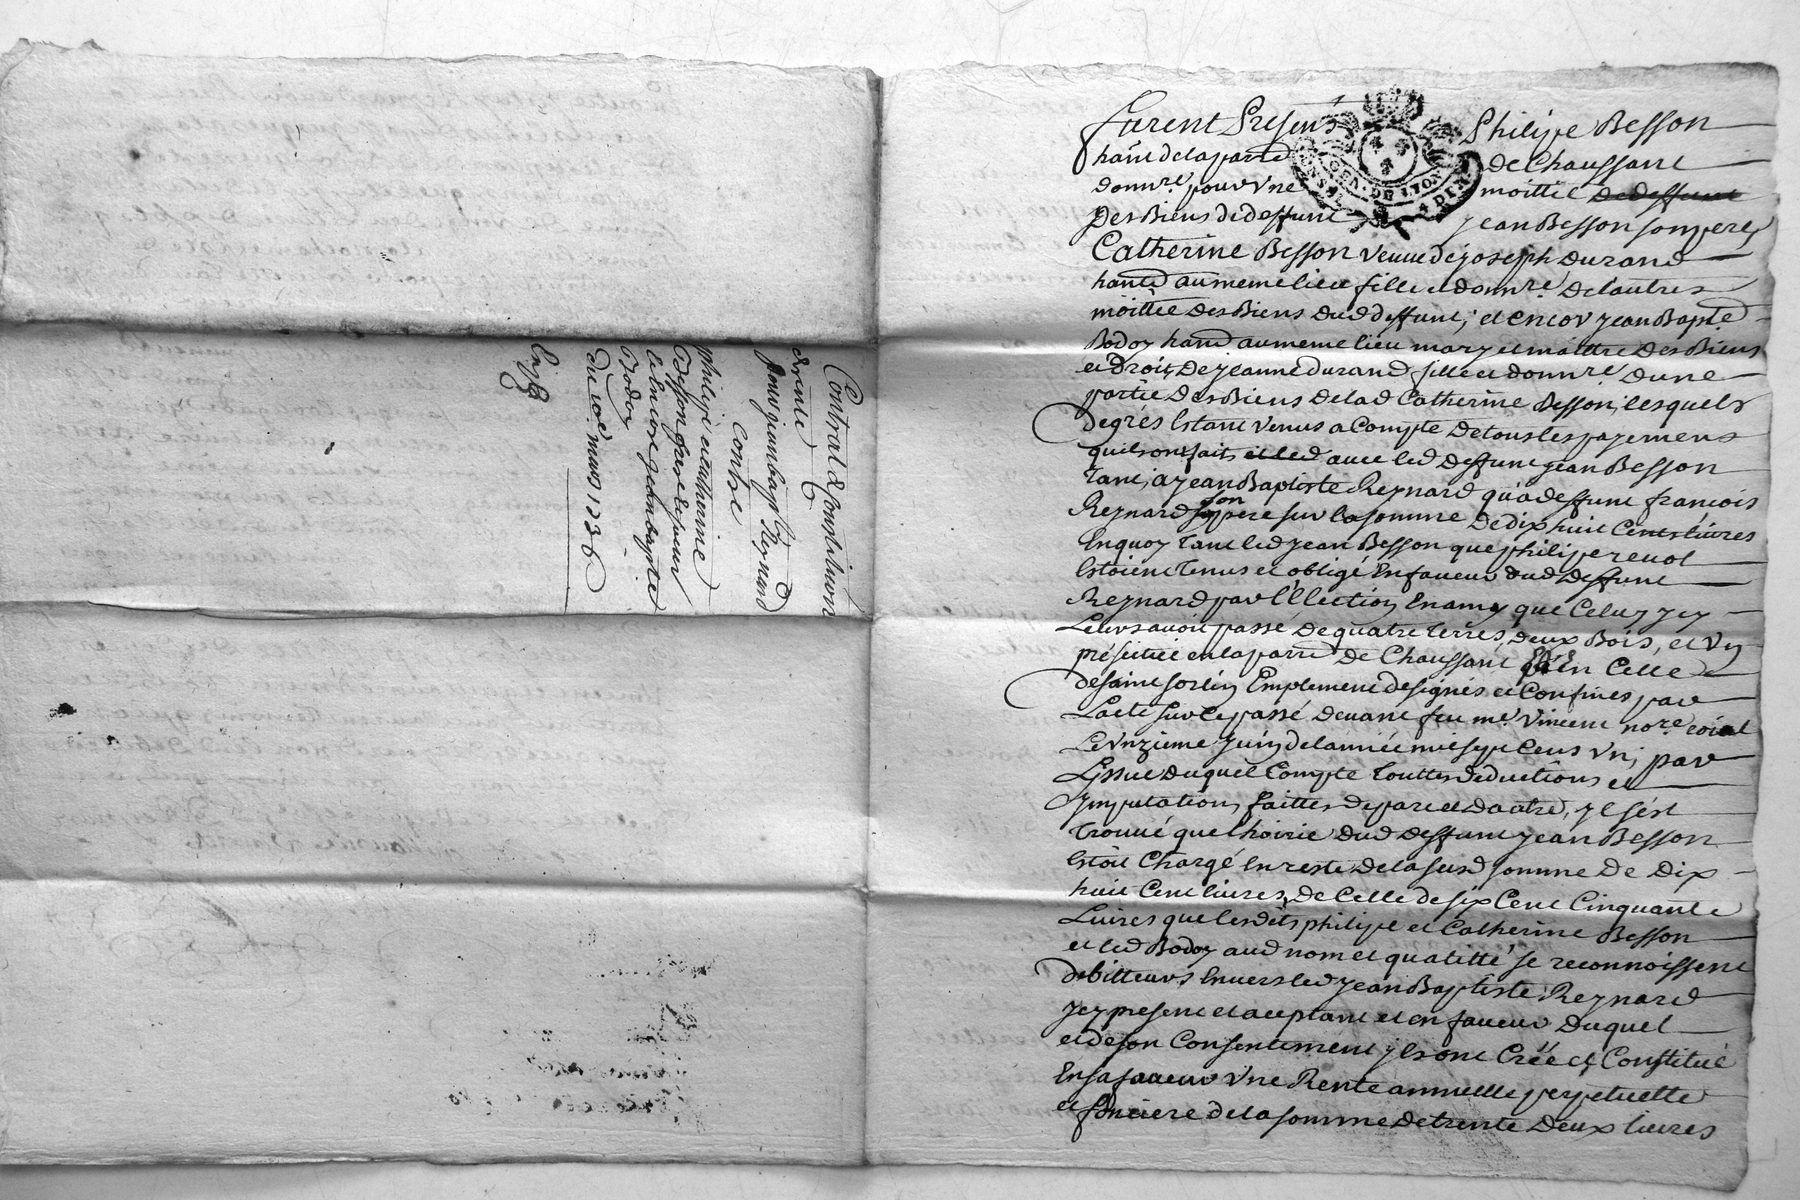 Contract de Constitution
de rente
pour jeanbapte Reynard
contre
philipe et catherine
Besson frere et soeur
et encore jeanbaptiste
Bodoy
Du mars 1736
GEN. DE LYON
Furent Presens Philipe Besson
hant de la parre de Chaussant
donnre pour vne moittié de deffunt
Des Biens de deffunt jean Besson son pere,
Catherine Besson veuue de joseph durand
hante au meme lieu fille et donnre De lautre
moittie des Biens dud deffunt; et encor jean Bapte
Bodoy hant au meme lieu mary et maittre Des Biens
et droits de jeanne durand fille et donnre Dune
partie Des Biens de lad Catherine Besson, lesquels
de grés Estant venus a Compte De tous les payemens
quils ont faits et led auec led deffunt jean Besson
Tant a jean Baptiste Reynard qu'a deffunt francois
Reynard son pere sur la somme De dix huit Cents liures
En quoy Tant led jean Besson que philipe reuol
Estoient Tenus et obligé En faueur dud Deffunt
Reynard par l'Ellection En amy que Celuy jcy
Leurs auoit passé De quatre Terres, deux Bois, et vn
pré scitué en la parre De Chaussant et en Celle
de saint sorlin Emplement designés et Confines par
Lacte sur Ce passé deuant feu me. vincent nore. roial
Le vnzieme juin de lannée mil sept Cens vn; par
Lissue Duquel Compte Touttes deductions et
jmputations faittes de part et Dautre, jl s'est
Trouué que lhoirie dud deffunt jean Besson
Estoit Chargé En reste de la susd somme De Dix
huit Cent liures, de Celle de six Cent Cinquante
Liures que lesdits philipe et Catherine Besson
et led Bodoy aud nom et qualitté se reconnoissent
debitteurs Enuers led jean Baptiste Reynard
jcy present et aceptant et en faueur Duquel
et de son Consentement jls ont Créé et Constitué
En sa faueur vne Rente annuelle perpetuelle
et fonciere de la somme de trente Deux liures